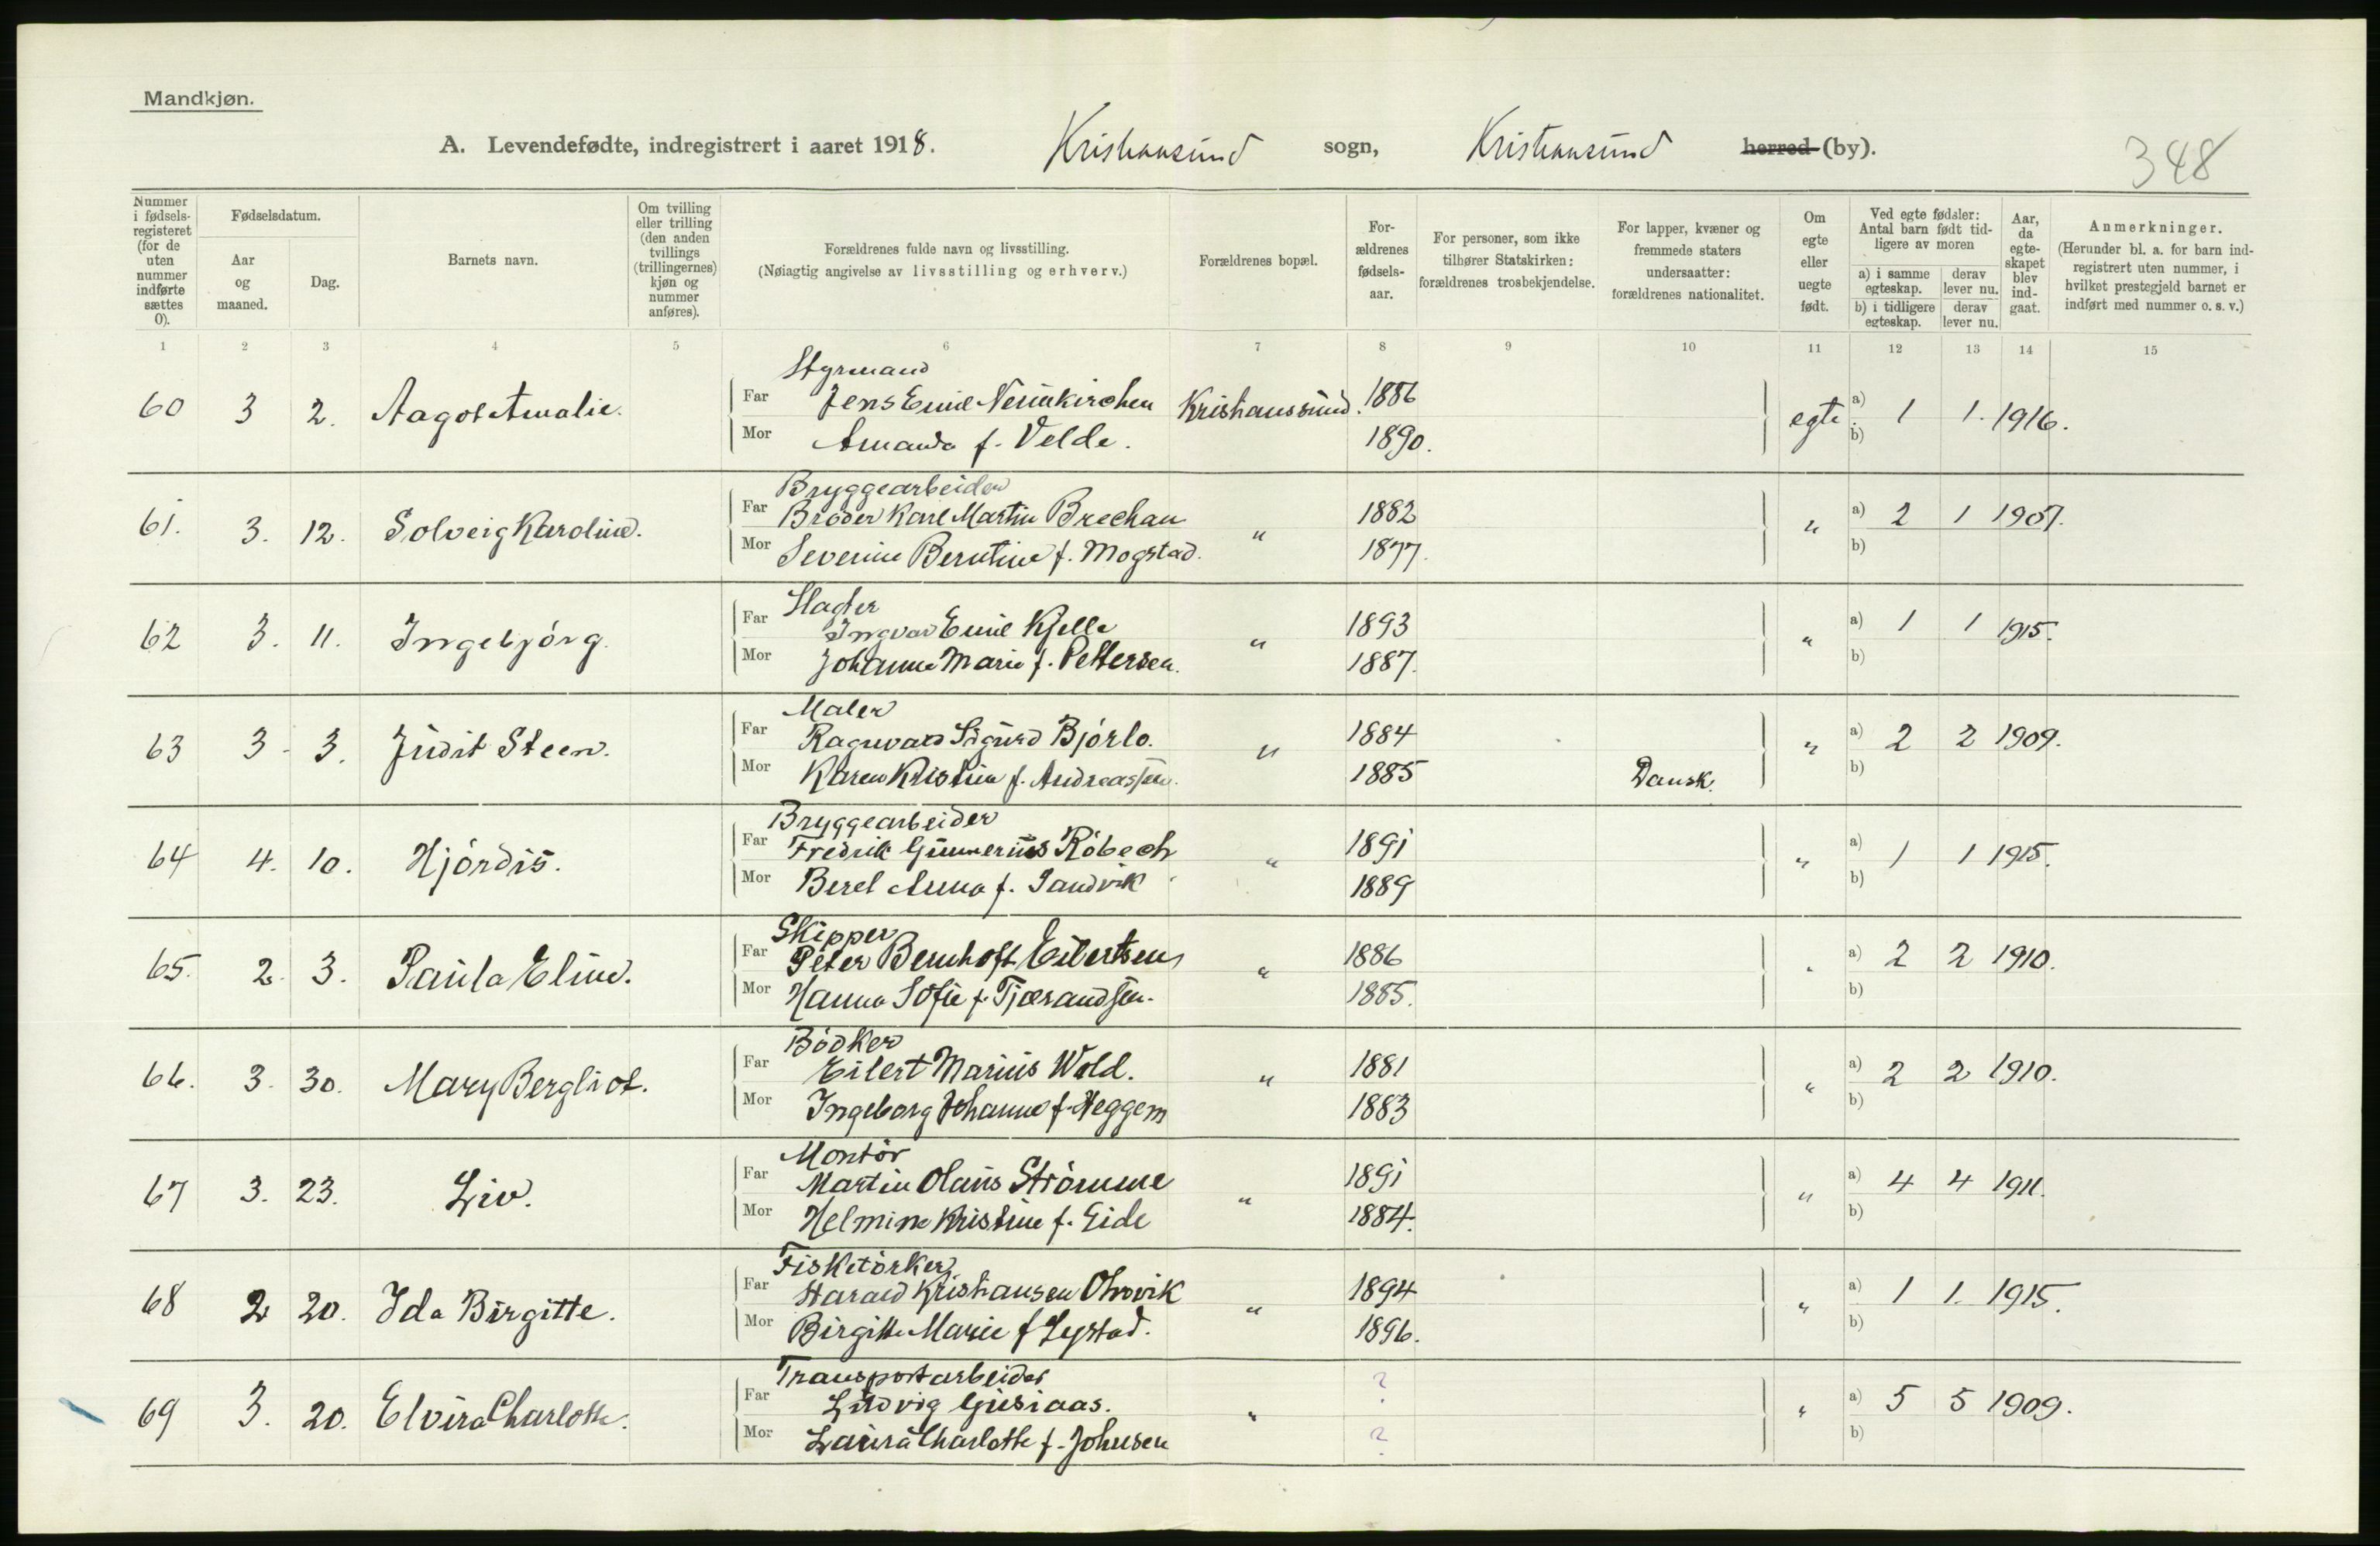 Mandkjøn.
A. Levendefødte, indregistrert i aaret 1918. Kristiansund sogn, Kristiansund herred (by). 348
Nummer i fødselsregisteret (for de uten nummer indførte sættes 0).
Fødselsdatum.
Aar og maaned.
Dag.
Barnets navn.
Om tvilling eller trilling (den anden tvillings (trillingernes) kjøn og nummer anføres).
Forældrenes fulde navn og livsstilling.
(Nøiagtig angivelse av livsstilling og erhverv.)
Forældrenes bopæl.
Forældrenes fødselsaar.
For personer, som ikke tilhører Statskirken: forældrenes trosbekjendelse.
For lapper, kvæner og fremmede staters undersaatter: forældrenes nationalitet.
Om egte eller uegte født.
Ved egte fødsler: Antal barn født tidligere av moren
a) i samme egteskap. derav lever nu.
b) i tidligere egteskap. derav lever nu.
Aar, da egteskapet blev indgaat.
Anmerkninger.
(Herunder bl. a. for barn indregistrert uten nummer, i hvilket prestegjeld barnet er indført med nummer o. s. v.)
1 2 3 4 5 6 7 8 9 10 11 12 13 14 15
Styrmand
60 3 2. Aagot Amalie. Far Jens Emil Neunkirchen Kristianssund. 1886 egte. a) 1 1. 1916.
Mor Amanda f. Velde. 1890. b)
Bryggearbeider
61. 3. 12. Solveig Karoline. Far Broder Karl Martin Brechan " 1882 " a) 2 1 1907.
Mor Severine Berntine f. Mogstad. 1877. b)
Slagter
62 3. 11. Ingebjörg. Far Ingvar Emil Kjelle " 1893 " a) 1 1 1915.
Mor Johanne Marie f. Pettersen. 1887. b)
Maler
63 3 - 3. Judit Steen. Far Ragnvard Sigurd Bjórlo. " 1884 " a) 2 2 1909.
Mor Karen Kristine f. Andreassen. 1885 Dansk. b)
Bryggearbeider
64 4. 10. Hjórdis. Far Fredrik Gunnerius Róbech " 1891 " a) 1 1 1915.
Mor Beret Anna f. Sandvik 1889 b)
Skipper
65. 2. 3. Paula Eline. Far Peter Bernhoft Eilertsen " 1886 " a) 2 2 1910.
Mor Hanna Sofie f. Tjærandsen. 1885. b)
Bódker
66. 3. 30. Mary Bergliot. Far Eilert Marius Wold. " 1881 " a) 2 2 1910.
Mor Ingeborg Johanne f. Heggem 1883 b)
Montór
67 3. 23. Liv. Far Martin Olaus Strómme " 1891 " a) 4 4 1911.
Mor Helmine Kristine f. Eide 1884. b)
Fisketórker
68 2 20. Ida Birgitte. Far Harald Kristiansen Olsvik " 1894 " a) 1 1. 1915.
Mor Birgitte Marie f Lystad. 1896. b)
Transportarbeider
69 3. 20. Elvira Charlotte. Far Ludvig Gusiaas. " ? " a) 5 5 1909.
Mor Laura Charlotte f. Johnsen ? b)